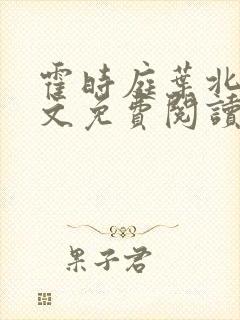 霍時庭葉北
文免費閱讀
果子君